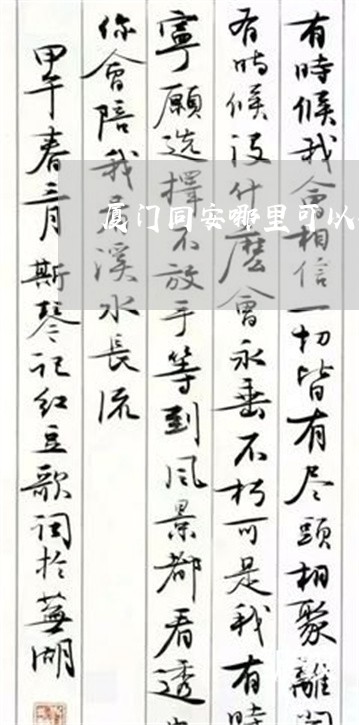 有時候我会相信一切皆有尽頭相聚離
有時候没什麼會永垂不朽可是我有時
寧願选擇不放手等到风景都看透
你會陪我看溪水長流
甲午春三月斯琴记红豆歌词於蕪湖
厦门同安哪里可以